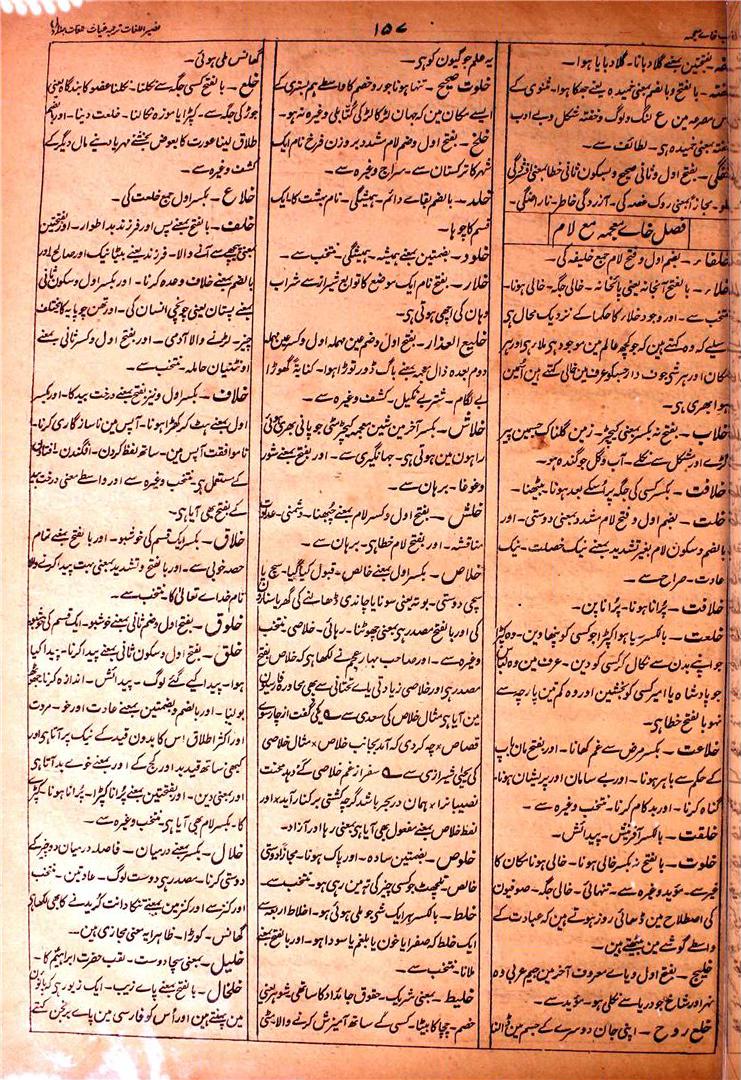 نصیر اللغات ترجمہ غیاث
۱۵۷
بفتحتین بمعنے گلا دبانا۔ گلا دبایا ہوا۔
بالفتح وبالضم بمعنی خمیدہ یعنے جھکا ہوا۔ مثنوی کے
اس مصرعہ میں ع لنگ ولوک وخفتہ شکل وبے ادب
خفتہ بمعنی خمیدہ ہی۔ لطائف سے۔
بفتح اول وثانی صحیح وبسکون ثانی خطا بمعنی
مجازاً بمعنی روک غصہ کی۔ آزردگی خاطر۔ ناراضگی۔
فصل خاے معجمہ مع لام
خلفاء۔ بضم اول وفتح لام جمع خلیفہ کی۔
خلاء۔ بالفتح آنجانہ یعنی پائخانہ۔ خالی جگہ۔ خالی ہونا۔
منتخب سے۔ اور وجود خلار کا حکما کے نزدیک محال ہی
اسلیے کہ وہ کہتے ہیں کہ جو کچھ عالم میں موجود ہی ملار ہی اور ہر
مکان اور ہر شی جوف دار جسکو عرف میں خالی کہتے ہیں اسمیں
ہوا بھری ہی۔
خلاب۔ بفتح نہ بکسر بمعنی کیچڑ۔ زمین گلناک جسمیں پیر
گڑے اور مشکل سے نکلے۔ آب وگل جو گندہ ہو۔
خلافت۔ بکسر کسی کی جگہ پر اُسکے بعد ہونا۔ بیٹھنا۔
خلت۔ بضم اول وفتح لام مشدد بمعنی دوستی۔ اور
بالضم وسکون لام بغیر تشدید بمعنے نیک خصلت۔ نیک
عادت۔ صراح سے۔
خلاقت۔ پُرانا ہونا۔ پُراناپن۔
خلعت۔ بالکسر سیا ہوا کپڑا جو کسی کو پنھا دیں۔ وہ کپڑا
جو اپنے بدن سے نکال کر کسی کو دیں۔ عرف میں وہ کپڑا
جو بادشاہ یا امیر کسی کو بخشیں اور وہ کم تین پارچہ سے
نہو بالفتح خطا ہی۔
خلاعت۔ بکسر مرض سے غم کھانا۔ اور بفتح ماں باپ
کے حکم سے باہر ہونا۔ اور بے سامان اور پریشان ہونا۔
گناہ کرنا۔ اور بدکام کرنا۔ منتخب وغیرہ سے۔
خلقت۔ بالکسر آفرینش۔ پیدائش۔
خلوت۔ بالفتح نہ بکسر خالی ہونا۔ خالی ہونا مکان کا
غیر سے۔ مؤید وغیرہ سے۔ تنہائی۔ خالی جگہ۔ صوفیوں
کی اصطلاح میں ڈھائی روز ہوتے ہیں کہ عبادت کے
واسطے گوشے میں بیٹھتے ہیں۔
خلیج۔ بفتح اول ویاے معروف آخر میں جیم عربی وہ
نہر اور شاخ جو دریا سے نکلی ہو۔ مؤید سے۔
خلع روح۔ اپنی جان دوسرے کے جسم میں ڈالنا
یہ علم جوگیوں کو ہی۔
خلوت صحیح۔ تنہا ہونا جورو خصم کا واسطے ہم بستری کے
ایسے مکان میں کہ جہاں لڑکا لڑکی کُتّا بلی وغیرہ نہ ہو۔
خلخ۔ بفتح اول وضم لام مشدد بروزن فرخ نام ایک
شہر کا ترکستان سے۔ سراج وغیرہ سے۔
خلد۔ بالضم بقاے دائم۔ ہمیشگی۔ نام بہشت کا۔ ایک
قسم کا چوہا۔
خلود۔ بضمتین بمعنے ہمیشہ۔ ہمیشگی۔ منتخب سے۔
خلار۔ بفتح نام ایک موضع کا توابع شیراز سے شراب
وہاں کی اچھی ہوتی ہی۔
خلیع العذار۔ بفتح اول وضم عین مہملہ اول وکسر عین مہملہ
دوم بعدہ ذال معجمہ بمعنے باگ ڈور توڑا ہوا۔ کنایۃً گھوڑا
بے لگام۔ شتر بے نکیل۔ کشف وغیرہ سے۔
خلاش۔ بکسر آخر میں شین معجمہ کیچڑ مٹی جو پانی بھری ہوئی
راہوں میں ہوتی ہی۔ جہانگیری سے۔ اور بفتح بمعنے شور
وغوغا۔ برہان سے۔
خلش۔ بفتح اول وکسر لام بمعنے چُبھنا۔ دشمنی۔ عداوت
مناقشہ۔ اور بفتح لام خطا ہی۔ برہان سے۔
خلاص۔ بکسر اول بمعنے خالص۔ قبول کیا گیا۔ سچ یا
سچی دوستی۔ بوتہ یعنی سونا یا چاندی ڈھالنے کی گھریا سنار
کی اور بالفتح مصدر ہی بمعنی چھوٹنا۔ رہائی۔ خلاصی منتخب
وغیرہ سے۔ اور صاحب بہار عجم نے لکھا ہی کہ خلاص بفتح
مصدر ہی اور خلاصی زیادتی یاے تحتانی سے بھی محاورۂ فارسیان
میں آیا ہی مثال خلاص کی سعدی سے ؎ یکے گفت از چار سوے
قصاص٭ چہ کردی کہ آمد بجانب خلاص٭ مثال خلاصی
کی یحیٰی شیرازی سے ؎ سفر از غم خلاصی کے دہد محنت
نصیباں را٭ ہماں در بحر باشد گر چہ کشتی بر کنار آمد٭ اور
لفظ خلاص بمعنے مفعول بھی آیا ہی بمعنی رہا اور آزاد۔
خلوص۔ بضمتین سادہ۔ اور پاک ہونا۔ مجازاً دوستی
خالص۔ تلچھٹ جو کسی چیز کی تہ میں رہی ہو۔ منتخب سے۔
خلط۔ بالکسر ہر ایک شی جو ملی ہوئی ہو۔ اخلاط اربعہ سے
ایک خلط کہ صفرا یا خون یا بلغم یا سودا ہو۔ اور بالفتح بمعنے
ملانا۔ منتخب سے۔
خلیط۔ بمعنی شریک۔ حقوق جائداد کا ساتھی۔ شوہر یعنی
خصم۔ چچا کا بیٹا۔ کسی کے ساتھ آمیزش کرنے والا۔ مٹی
گھانس ملی ہوئی۔
خلع۔ بالفتح کسی جگہ سے نکلنا۔ نکلنا عضو کا بندگاہ یعنی
جوڑ کی جگہ سے۔ کپڑا یا موزہ نکالنا۔ خلعت دینا۔ اور بالضم
طلاق لینا عورت کا بعوض بخشنے مہر یا دینے مال دیگر کے
کشف وغیرہ سے۔
خلاع۔ بکسر اول جمع خلعت کی۔
خلف۔ بالفتح بمعنے پس اور فرزند بد اطوار۔ اور بفتحتین
بمعنی پیچھے سے آنے والا۔ فرزند یعنے بیٹا نیک اور صالح اور
بالضم بمعنے خلاف وعدہ کرنا۔ اور بکسر اول وسکون ثانی
بمعنے پستان یعنی چوچی انسان کی۔ اور تھن چوپایہ کا مختلف
چیز۔ لڑنے والا آدمی۔ اور بفتح اول وکسر ثانی بمعنے
اونٹنیاں حاملہ۔ منتخب سے۔
خلاف۔ بکسر اول ونیز بفتح بمعنے درخت بید کا۔ اور بکسر
اول بمعنے ہٹ کر کھڑا ہونا۔ آپس میں ناسازگاری کرنا۔
ناموافقت آپس میں۔ ساتھ لفظ کردن۔ افگندن۔ افتادن
کے مستعمل ہی۔ منتخب وغیرہ سے اور واسطے معنی درخت بید
کے بفتح بھی آیا ہی۔
خلاق۔ بکسر ایک قسم کی خوشبو۔ اور بالفتح بمعنے تمام
حصہ خوبی سے۔ اور بالفتح وتشدید بمعنی بہت پیدا کرنے والا
نام خداے تعالٰی کا۔ منتخب سے۔
خلوق۔ بفتح اول وضم ثانی بمعنے خوشبو۔ ایک قسم کی خوشبو
خلق۔ بفتح اول وسکون ثانی بمعنے پیدا کرنا۔ پیدا کیا
ہوا۔ پیدا کیے گئے لوگ۔ پیدائش۔ اندازہ کرنا۔ جھوٹ
بولنا۔ اور بالضم وبضمتین بمعنے عادت اور خو۔ مروت
اور اکثر اطلاق اس کا بدون قید کے نیک پر آتا ہی اور
کبھی ساتھ قید بد اور کج کے اور بمعنے خوے بد آتا ہی
اور بمعنی دین۔ اور بفتحتین بمعنے پُرانا کپڑا۔ پُرانا ہونا۔ کپڑے
کا۔ بکسر لام بھی آیا ہی۔ منتخب وغیرہ سے۔
خلال۔ بکسر بمعنے درمیان۔ فاصلہ درمیان دو چیز کے
دوستی کرنا۔ مصدر ہی دوست لوگ۔ عادتیں۔ منتخب
اور کنز سے اور کنز میں بمعنے تنکا دانت کُریدنے کا بھی لکھا ہی
گھانس۔ کوڑا۔ ظاہرا یہ معنی مجازی ہیں۔
خلیل۔ بمعنی سچا دوست۔ لقب حضرت ابراہیمؑ کا۔
خلخال۔ بالفتح بمعنے پاے زیب۔ ایک زیور ہی کہ پانوں
میں پہنتے ہیں اور اُس کو فارسی میں پاے برنجن کہتے